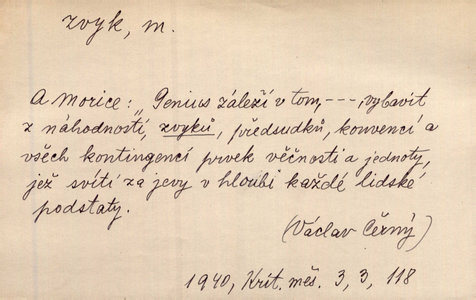 zvyk, m.
A Morice: „Genius záleží v tom, ---, vybavit
z náhodností, zvyků, předsudků, konvencí a
všech kontingencí prvek věčnosti a jednoty,
jež svítí za jevy v hloubi každé lidské
podstaty.
(Václav Černý)
1940, Krit. měs. 3, 3, 118